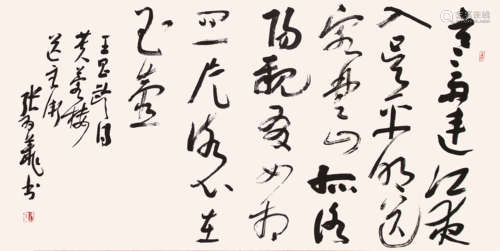 寒雨連江夜
入吴平明送
客楚山孤洛
陽親友如相
问一片冰心在
玉壺
王昌龄诗
芙蓉楼
送辛渐
張 義书